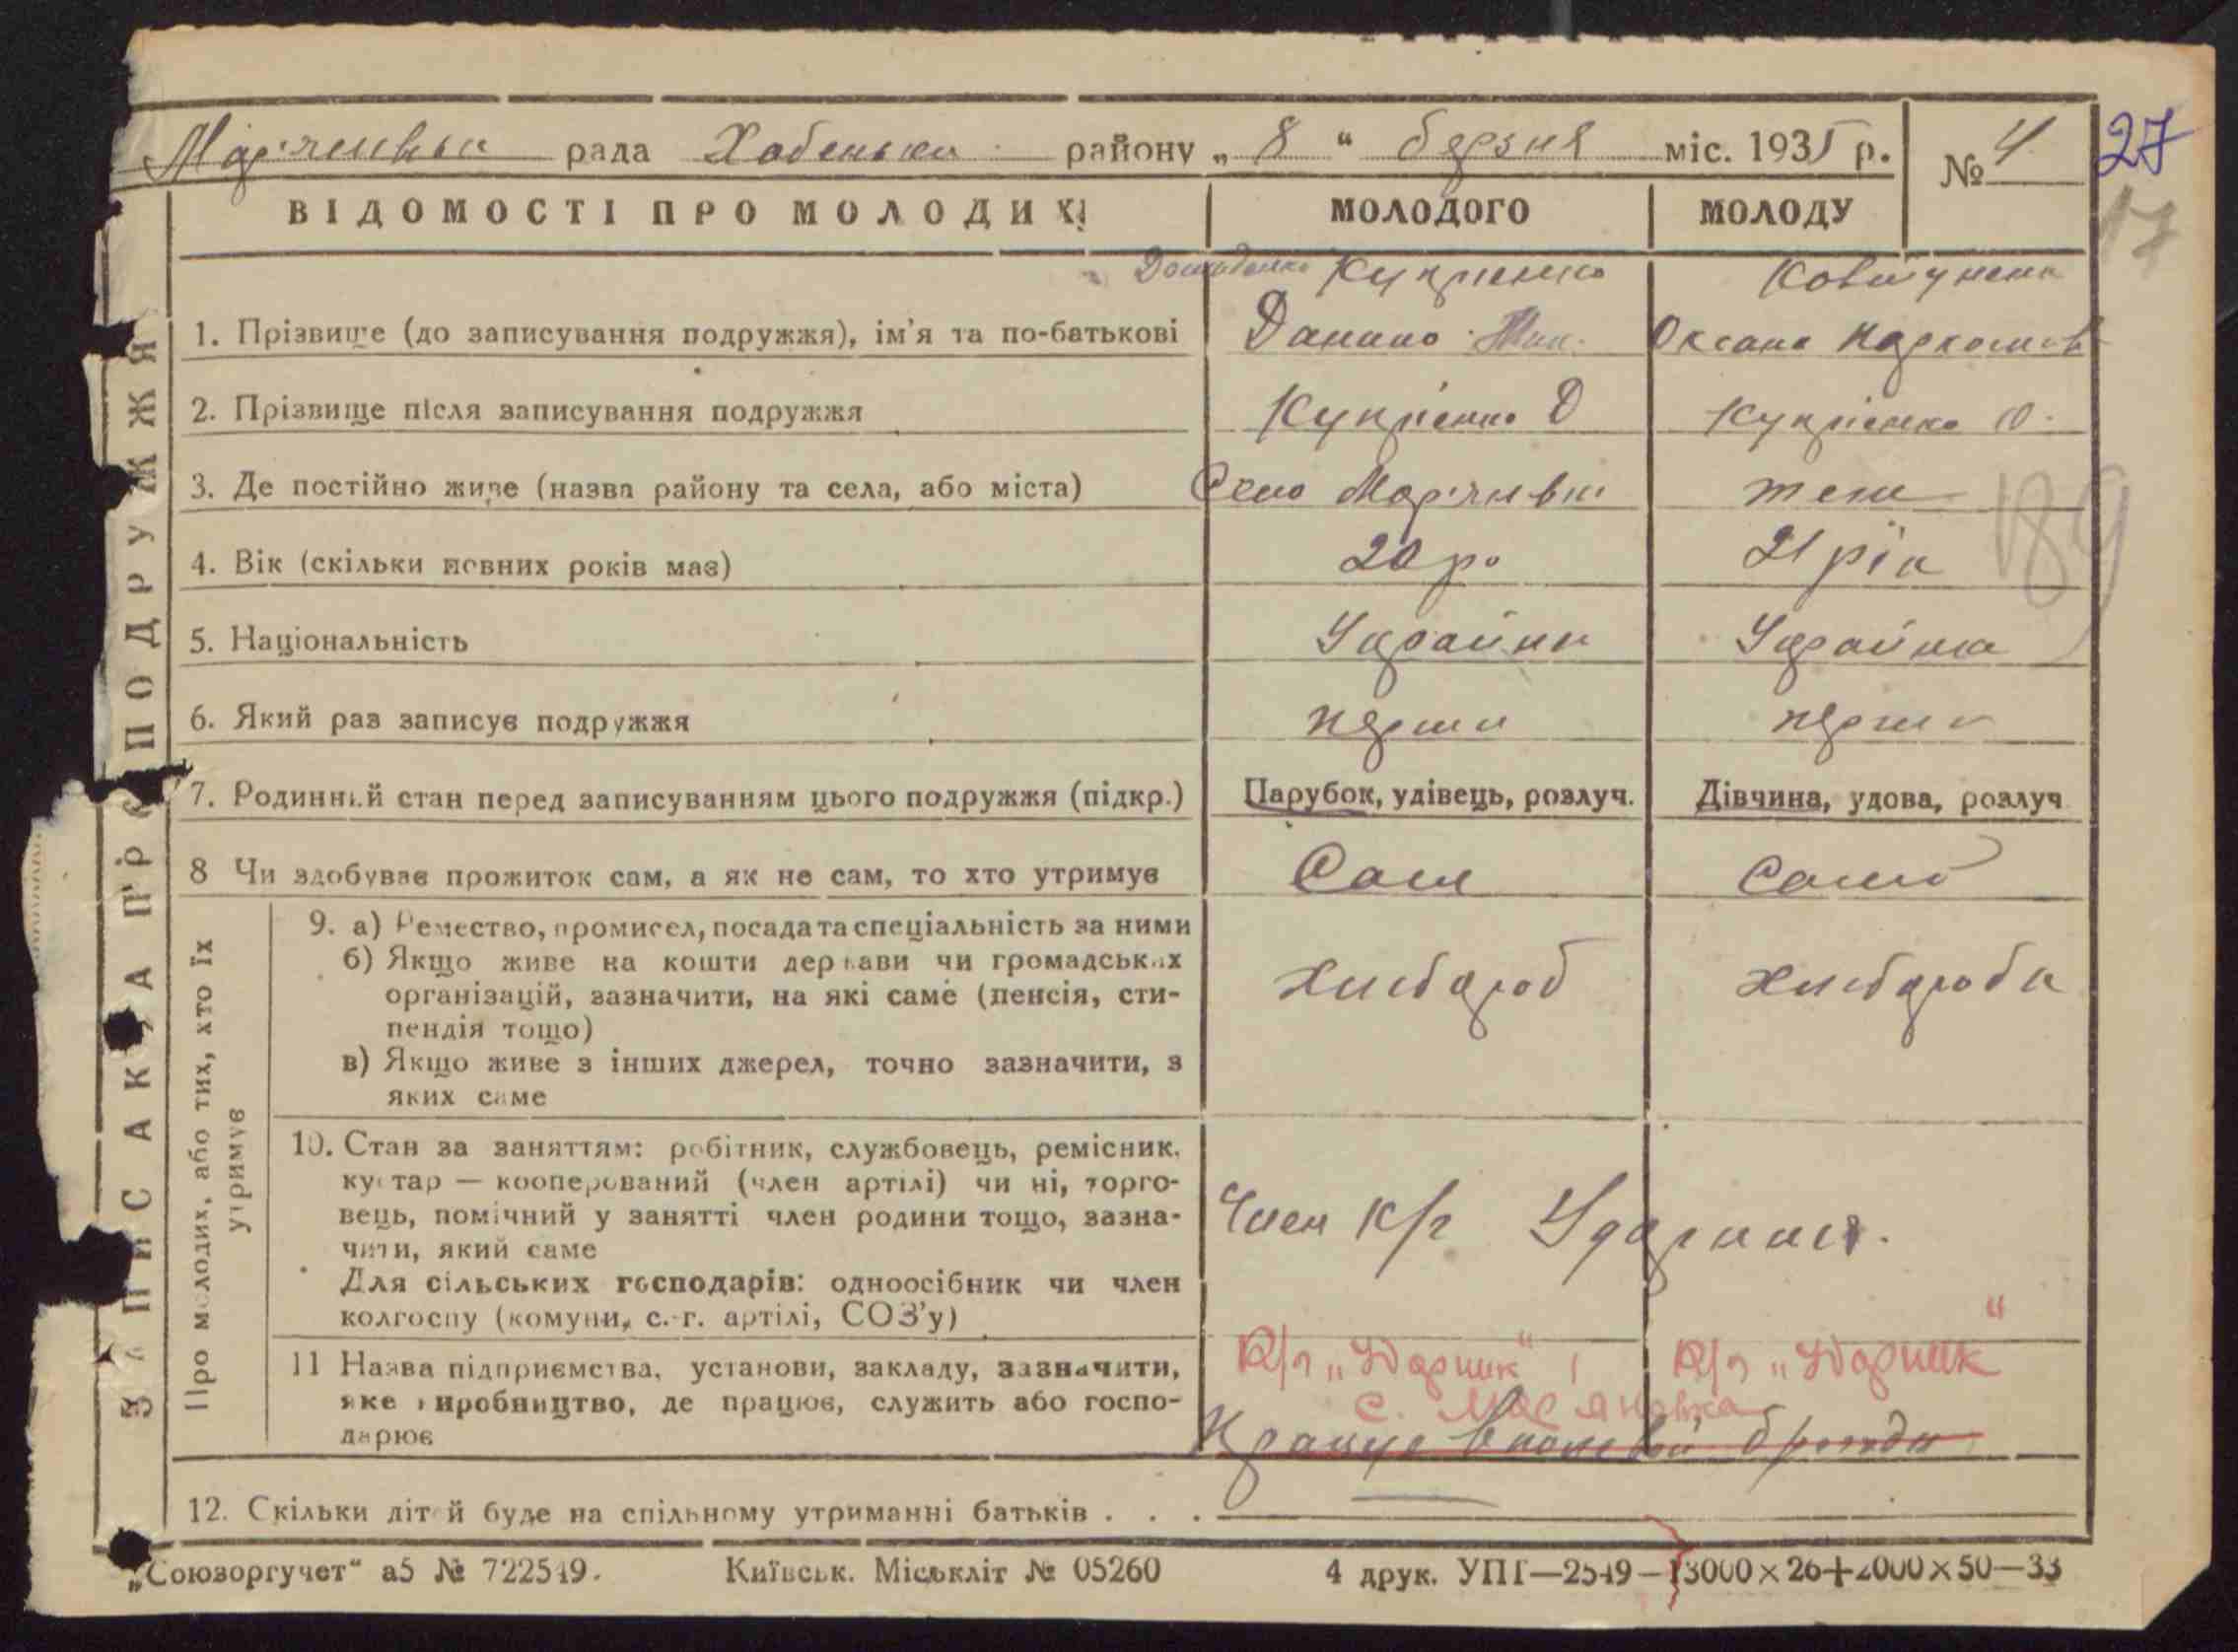 Мар'янівка рада Хабеньки району „ 8 “ березня міс. 1935 р. № 4
27
17
ВІДОМОСТІ ПРО МОЛОДИХ МОЛОДОГО МОЛОДУ
Купрієнко
1. Прізвище (до записування подружжя), ім'я та по-батькові Данило Оксана
2. Прізвище після записування подружжя Купрієнко Д Купрієнко О.
3. Де постійно живе (назва району та села, або міста) Село Мар'янівка теж
189
4. Вік (скільки повних років має) 20 р. 21 рік
5. Національність Українц Українка
6. Який раз записує подружжя перши перши
7. Родинний стан перед записуванням цього подружжя (підкр.) Парубок, удівець, розлуч. Дівчина, удова, розлуч
8 Чи здобуває прожиток сам, а як не сам, то хто утримує Сам Сама
ЗАПИСКА ПРО ПОДРУЖЖЯ
Про молодих, або тих, хто їх
утримує
9. а) Ремество, промисел, посада та спеціальність за ними
б) Якщо живе на кошти держави чи громадських
організацій, зазначити, на які саме (пенсія, сти-
пендія тощо)
хлібороб хлібороби
в) Якщо живе з інших джерел, точно зазначити, з
яких саме
10. Стан за заняттям: робітник, службовець, ремісник,
кустар — кооперований (член артілі) чи ні, торго-
вець, помічний у занятті член родини тощо, зазна-
чити, який саме
Член к/г Ударник.
Для сільських господарів: одноосібник чи член
колгоспу (комуни, с.-г. артілі, СОЗ'у)
11 Назва підприємства, установи, закладу, зазначити, К/г „Ударник“ К/г „Ударник“
яке виробництво, де працює, служить або госпо- с. Мар'яновка
дарює Працює в полевой бригади
12. Скільки дітей буде на спільному утриманні батьків . . . —
„Союзоргучет“ а5 № 722549. Київськ. Міськліт № 05260 4 друк. УПП—2549—13000×26+2000×50—33